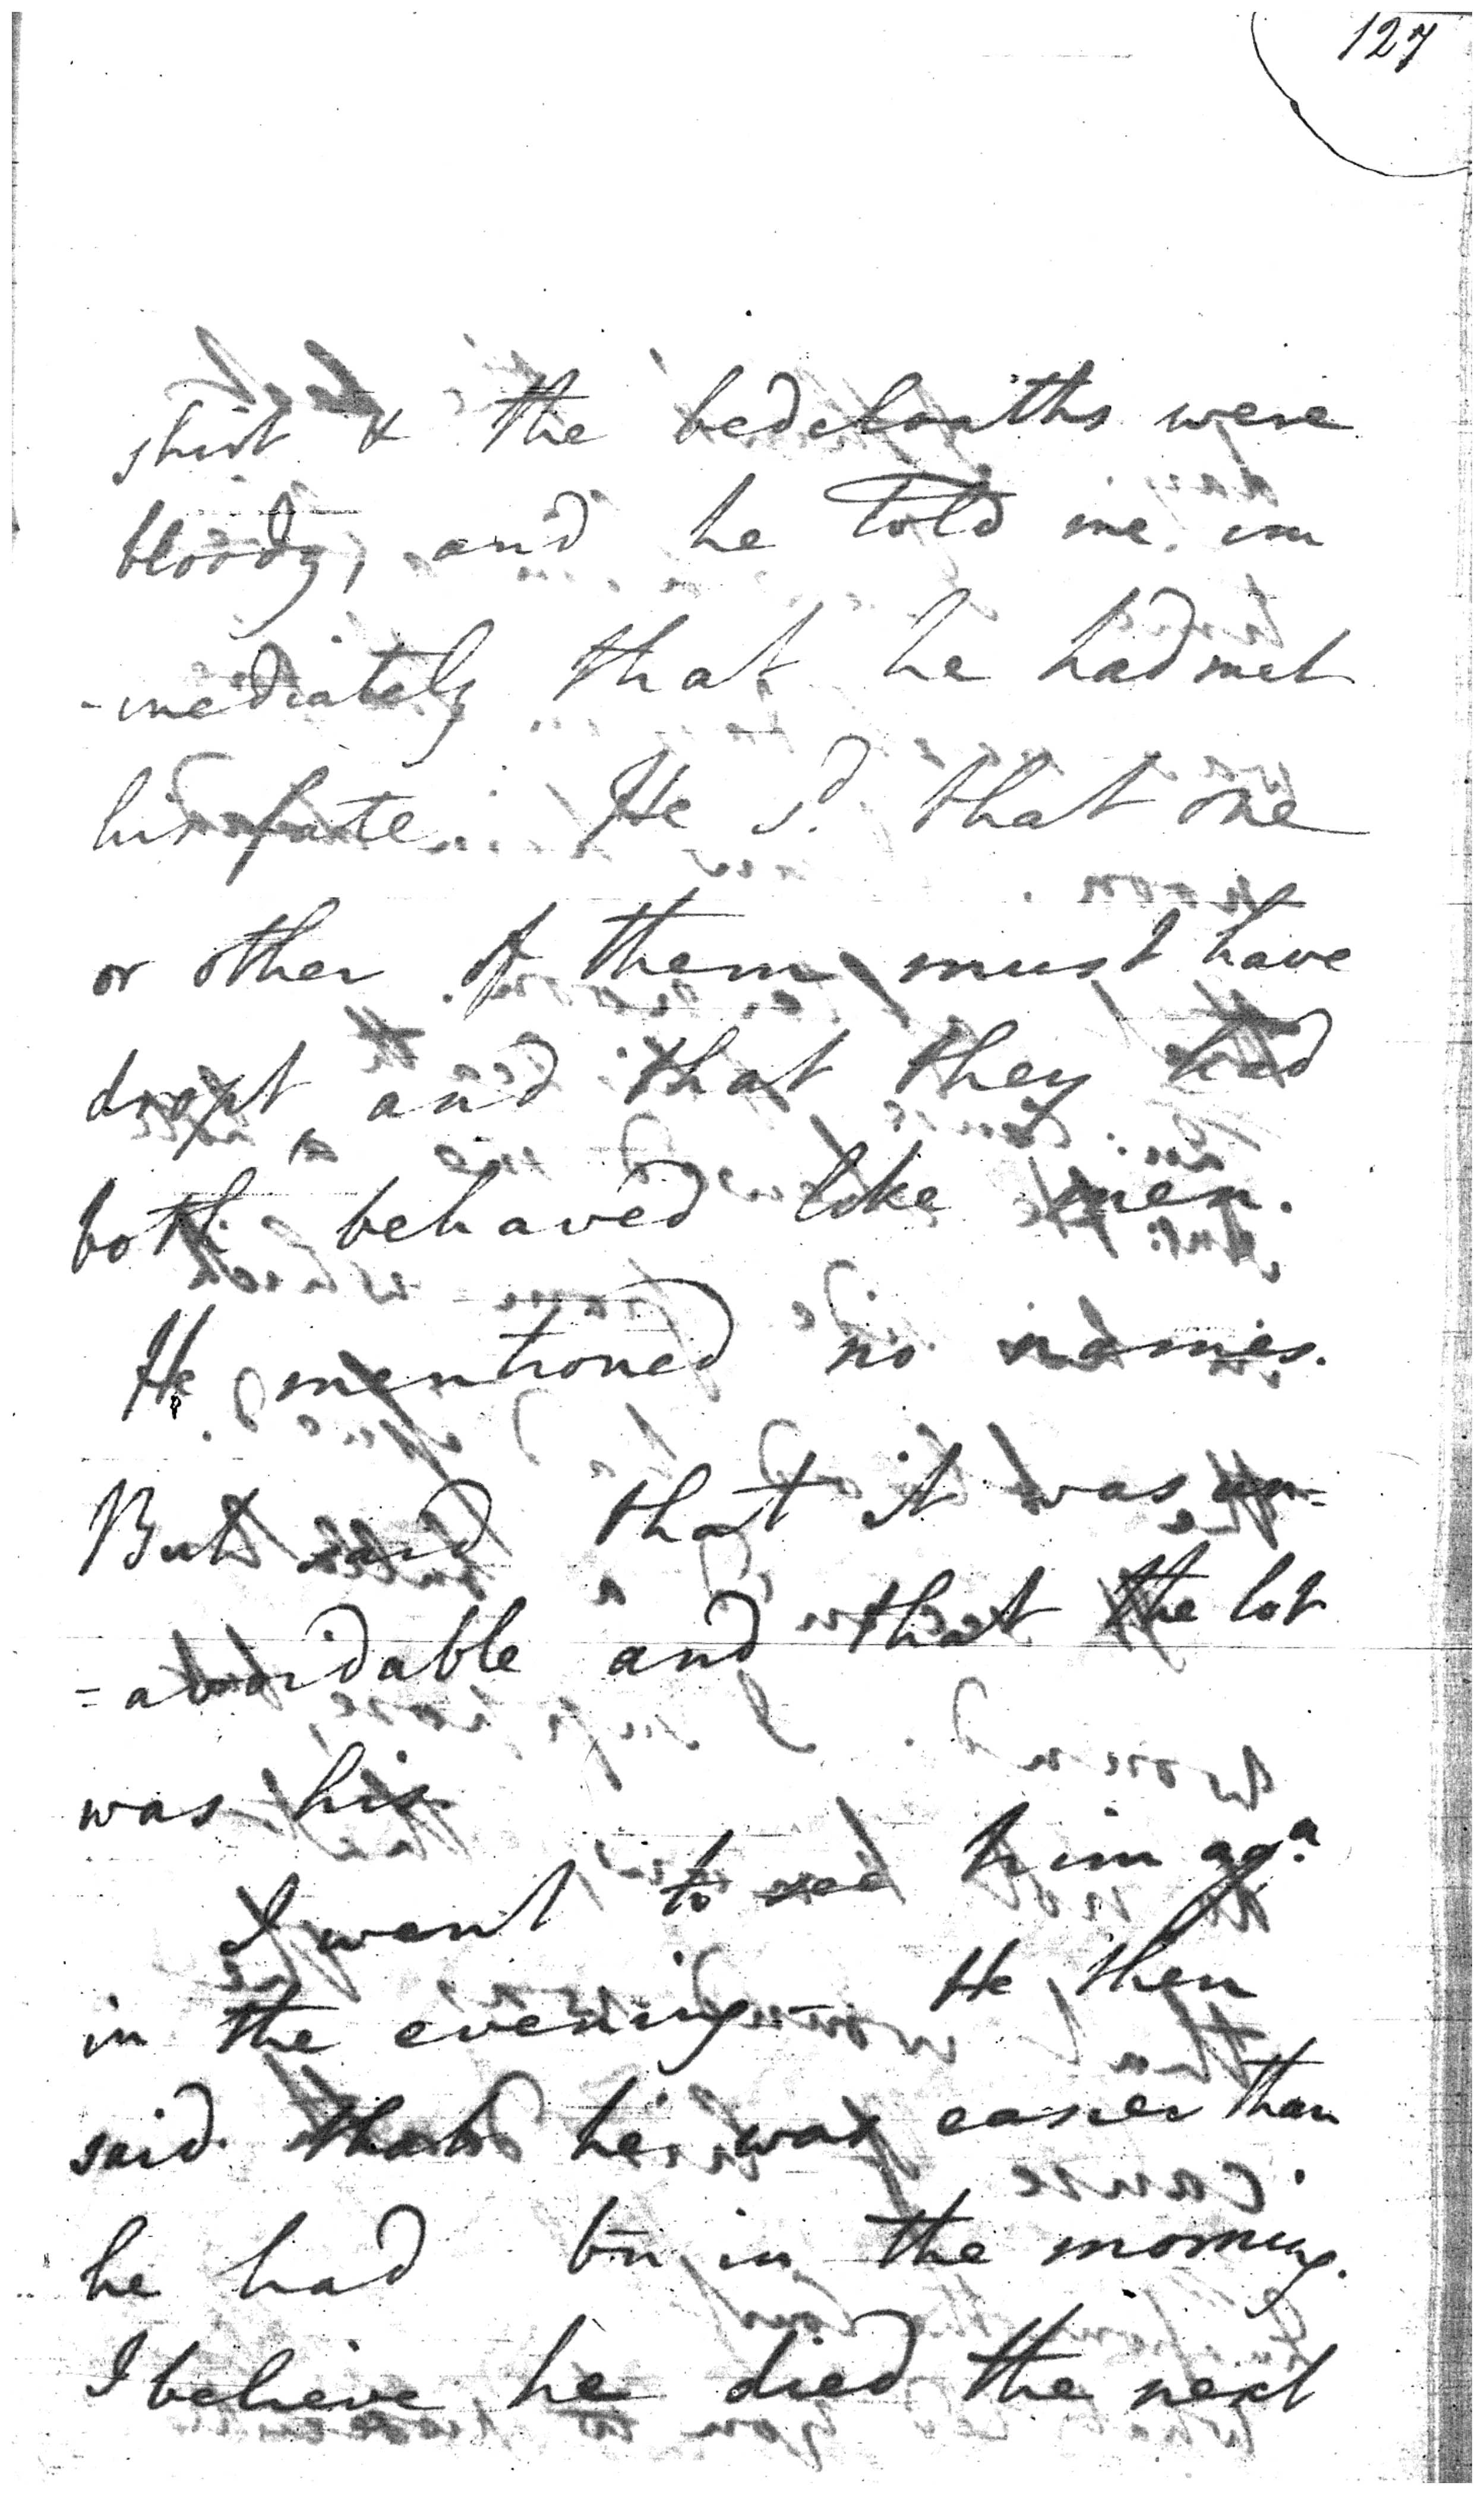 127
shirt & the bedcloaths were
bloody, and he told me im
-mediately that he had met
his fate. He sd. that one
or other of them must have
dropt, and that they had
both behaved like men.
He mentioned no names.
But said that it was un=
=avoidable and that the lot
was his.
I went to see him aga.
in the evening — He then
said that he was easier than
he had bn in the morning.
I believe he died the next